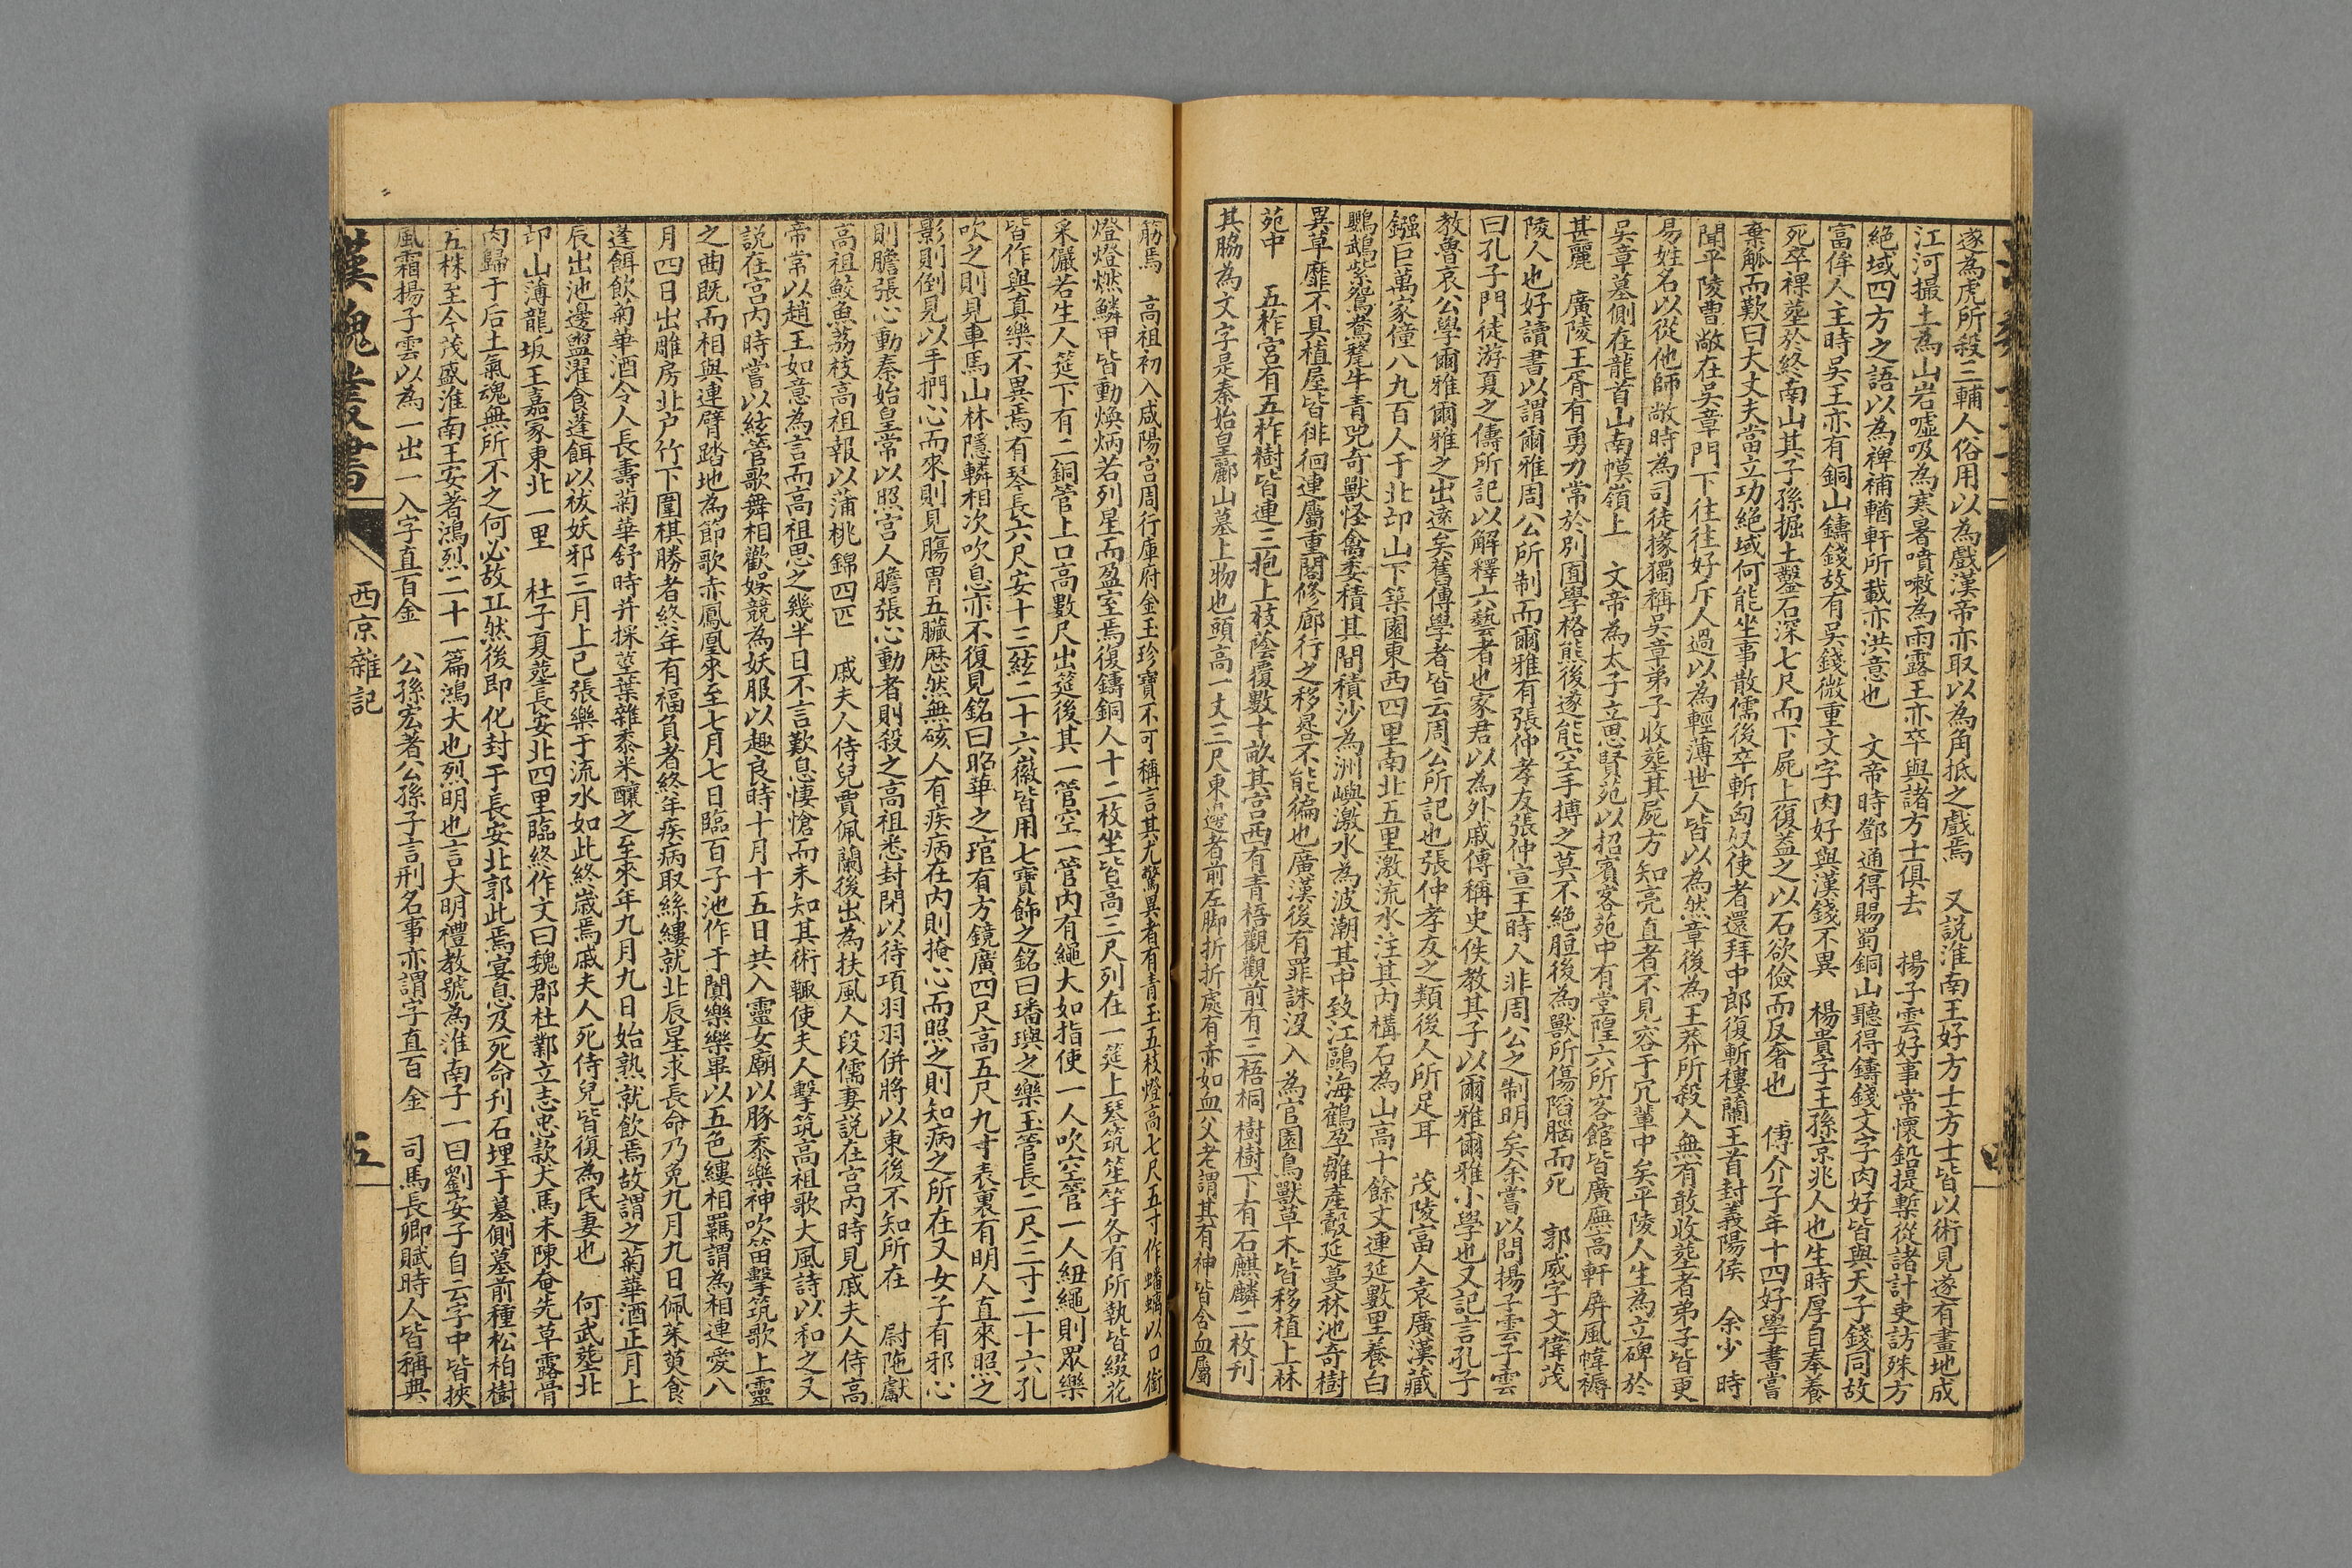 遂為虎所殺三輔人俗用以為戲漢帝亦取以為角抵之戲焉　又說淮南王好方士方士皆以術見遂有畫地成
江河撮土為山岩噓吸為寒暑噴嗽為雨露王亦卒與諸方士俱去　揚子雲好事常懷鉛提槧從諸計吏訪殊方
絕域四方之語以為裨補輶軒所載亦洪意也　文帝時鄧通得賜蜀銅山聽得鑄錢文字肉好皆與天子錢同故
富侔人主時吳王亦有銅山鑄錢故有吳錢微重文字肉好與漢錢不異　楊貴字王孫京兆人也生時厚自奉養
死卒裸塟於終南山其子孫掘土鑿石深七尺而下屍上復蓋之以石欲儉而反奢也　傅介子年十四好學書嘗
棄觚而歎曰大丈夫當立功絕域何能坐事散儒後卒斬匈奴使者還拜中郎復斬樓蘭王首封義陽侯　余少時
聞平陵曹敞在吳章門下往往好斥人過以為輕薄世人皆以為然章後為王莽所殺人無有敢收塟者弟子皆更
易姓名以從他師敞時為司徒掾獨稱吳章弟子收塟其屍方知亮直者不見容于冗輩中矣平陵人生為立碑於
吳章墓側在龍首山南幙嶺上　文帝為太子立思賢苑以招賓客苑中有堂隍六所客館皆廣廡高軒屏風幃褥
甚麗　廣陵王胥有勇力常於別囿學格熊後遂能空手搏之莫不絕脰後為獸所傷陷腦而死　郭威字文偉茂
陵人也好讀書以謂爾雅周公所制而爾雅有張仲孝友張仲宣王時人非周公之制明矣余嘗以問揚子雲子雲
曰孔子門徒游夏之儔所記以解釋六藝者也家君以為外戚傳稱史佚教其子以爾雅爾雅小學也又記言孔子
教魯哀公學爾雅爾雅之出遠矣舊傳學者皆云周公所記也張仲孝友之類後人所足耳　茂陵富人袁廣漢藏
鏹巨萬家僮八九百人于北邙山下築園東西四里南北五里激流水注其內構石為山高十餘丈連延數里養白
鸚鵡紫鴛鴦氂牛青兕奇獸怪禽委積其間積沙為洲嶼激水為波潮其中致江鷗海鶴孕雛產鷇延蔓林池奇樹
異草靡不具植屋皆徘徊連屬重閣修廊行之移晷不能徧也廣漢後有罪誅沒入為官園鳥獸草木皆移植上林
苑中　五柞宮有五柞樹皆連三抱上枝蔭覆數十畝其宮西有青梧觀觀前有三梧桐樹樹下有石麒麟二枚刊
其脇為文字是秦始皇酈山墓上物也頭高一丈三尺東邊者前左脚折折處有赤如血父老謂其有神皆含血屬
筋焉　高祖初入咸陽宮周行庫府金玉珍寶不可稱言其尤驚異者有青玉五枝燈高七尺五寸作蟠螭以口銜
燈燈燃鱗甲皆動煥炳若列星而盈室焉復鑄銅人十二枚坐皆高三尺列在一筵上琴筑笙竽各有所執皆綴花
采儼若生人筵下有二銅管上口高數尺出筵後其一管空一管內有繩大如指使一人吹空管一人紐繩則眾樂
皆作與真樂不異焉有琴長六尺安十三絃二十六徽皆用七寶飾之銘曰璠璵之樂玉管長二尺三寸二十六孔
吹之則見車馬山林隱轔相次吹息亦不復見銘曰昭華之琯有方鏡廣四尺高五尺九寸表裏有明人直來照之
影則倒見以手捫心而來則見腸胃五臟歷然無硋人有疾病在內則掩心而照之則知病之所在又女子有邪心
則膽張心動秦始皇常以照宮人膽張心動者則殺之高祖悉封閉以待項羽羽併將以東後不知所在　尉陁獻
高祖鮫魚荔枝高祖報以蒲桃錦四匹　戚夫人侍兒賈佩蘭後出為扶風人段儒妻說在宮內時見戚夫人侍高
帝常以趙王如意為言而高祖思之幾半日不言歎息悽愴而未知其術輒使夫人擊筑高祖歌大風詩以和之又
說在宮內時嘗以絃管歌舞相歡娛競為妖服以趣良時十月十五日共入靈女廟以豚黍樂神吹笛擊筑歌上靈
之曲既而相與連臂踏地為節歌赤鳳凰來至七月七日臨百子池作于闐樂樂畢以五色縷相羈謂為相連愛八
月四日出雕房北戶竹下圍棋勝者終年有福負者終年疾病取絲縷就北辰星求長命乃免九月九日佩茱萸食
蓬餌飲菊華酒令人長壽菊華舒時并採莖葉雜黍米釀之至來年九月九日始熟就飲焉故謂之菊華酒正月上
辰出池邊盥濯食蓬餌以祓妖邪三月上巳張樂于流水如此終歲焉戚夫人死侍兒皆復為民妻也　何武塟北
邙山薄龍坂王嘉冢東北一里　杜子夏塟長安北四里臨終作文曰魏郡杜鄴立志忠款犬馬未陳奄先草露骨
肉歸于后土氣魂無所不之何必故丘然後即化封于長安北郭此焉宴息及死命刊石埋于墓側墓前種松柏樹
五株至今茂盛淮南王安著鴻烈二十一篇鴻大也烈明也言大明禮教號為淮南子一曰劉安子自云字中皆挾
風霜揚子雲以為一出一入字直百金　公孫宏著公孫子言刑名事亦謂字直百金　司馬長卿賦時人皆稱典
漢魏叢書　西京雜記　五